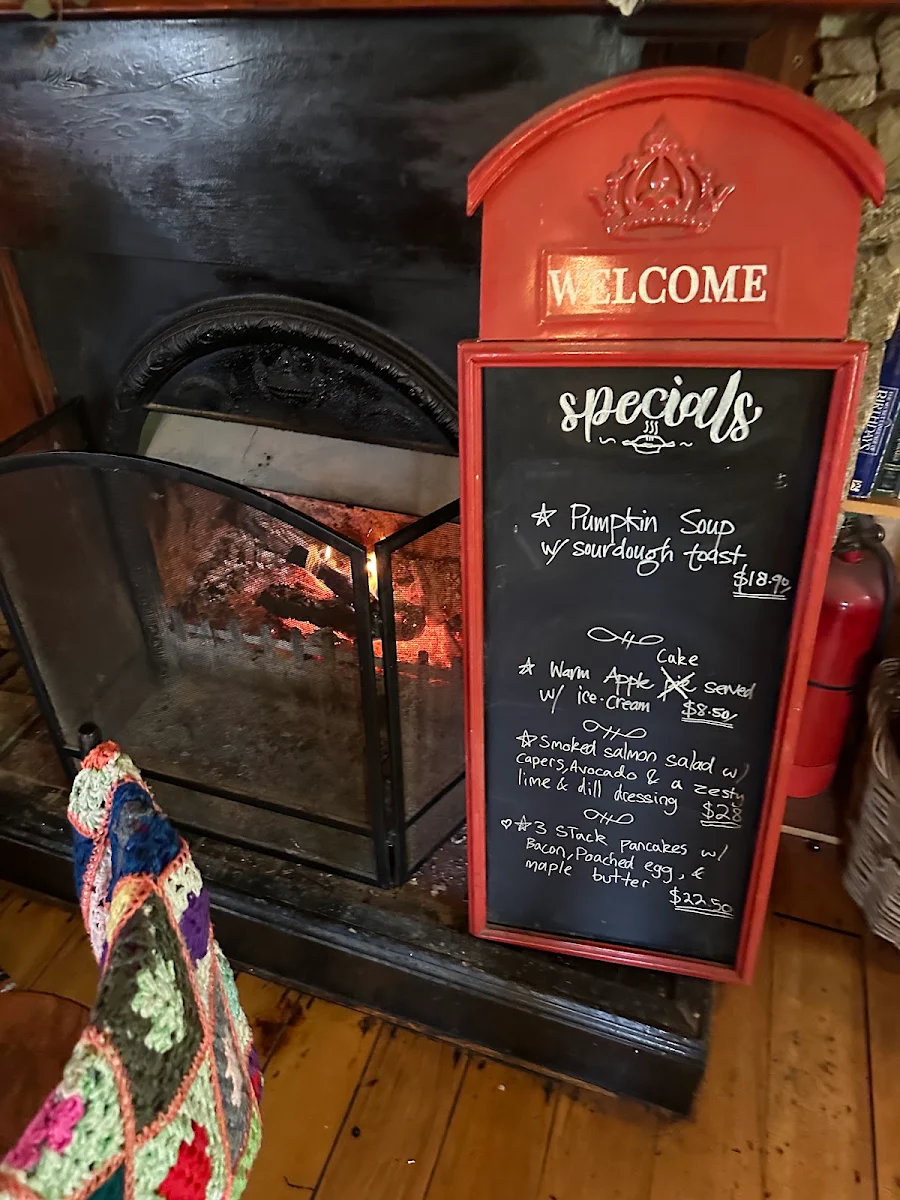 WELCOME
specials
☆ Pumpkin Soup
w/ sourdough toast
$18.90
Cake
☆ Warm Apple pie served
w/ ice-cream $8.50
☆ Smoked salmon salad w/
capers, Avocado & a zesty
lime & dill dressing $28
♡☆ 3 Stack Pancakes w/
Bacon, Poached egg, &
maple butter
$22.50
BIRTHDAYS